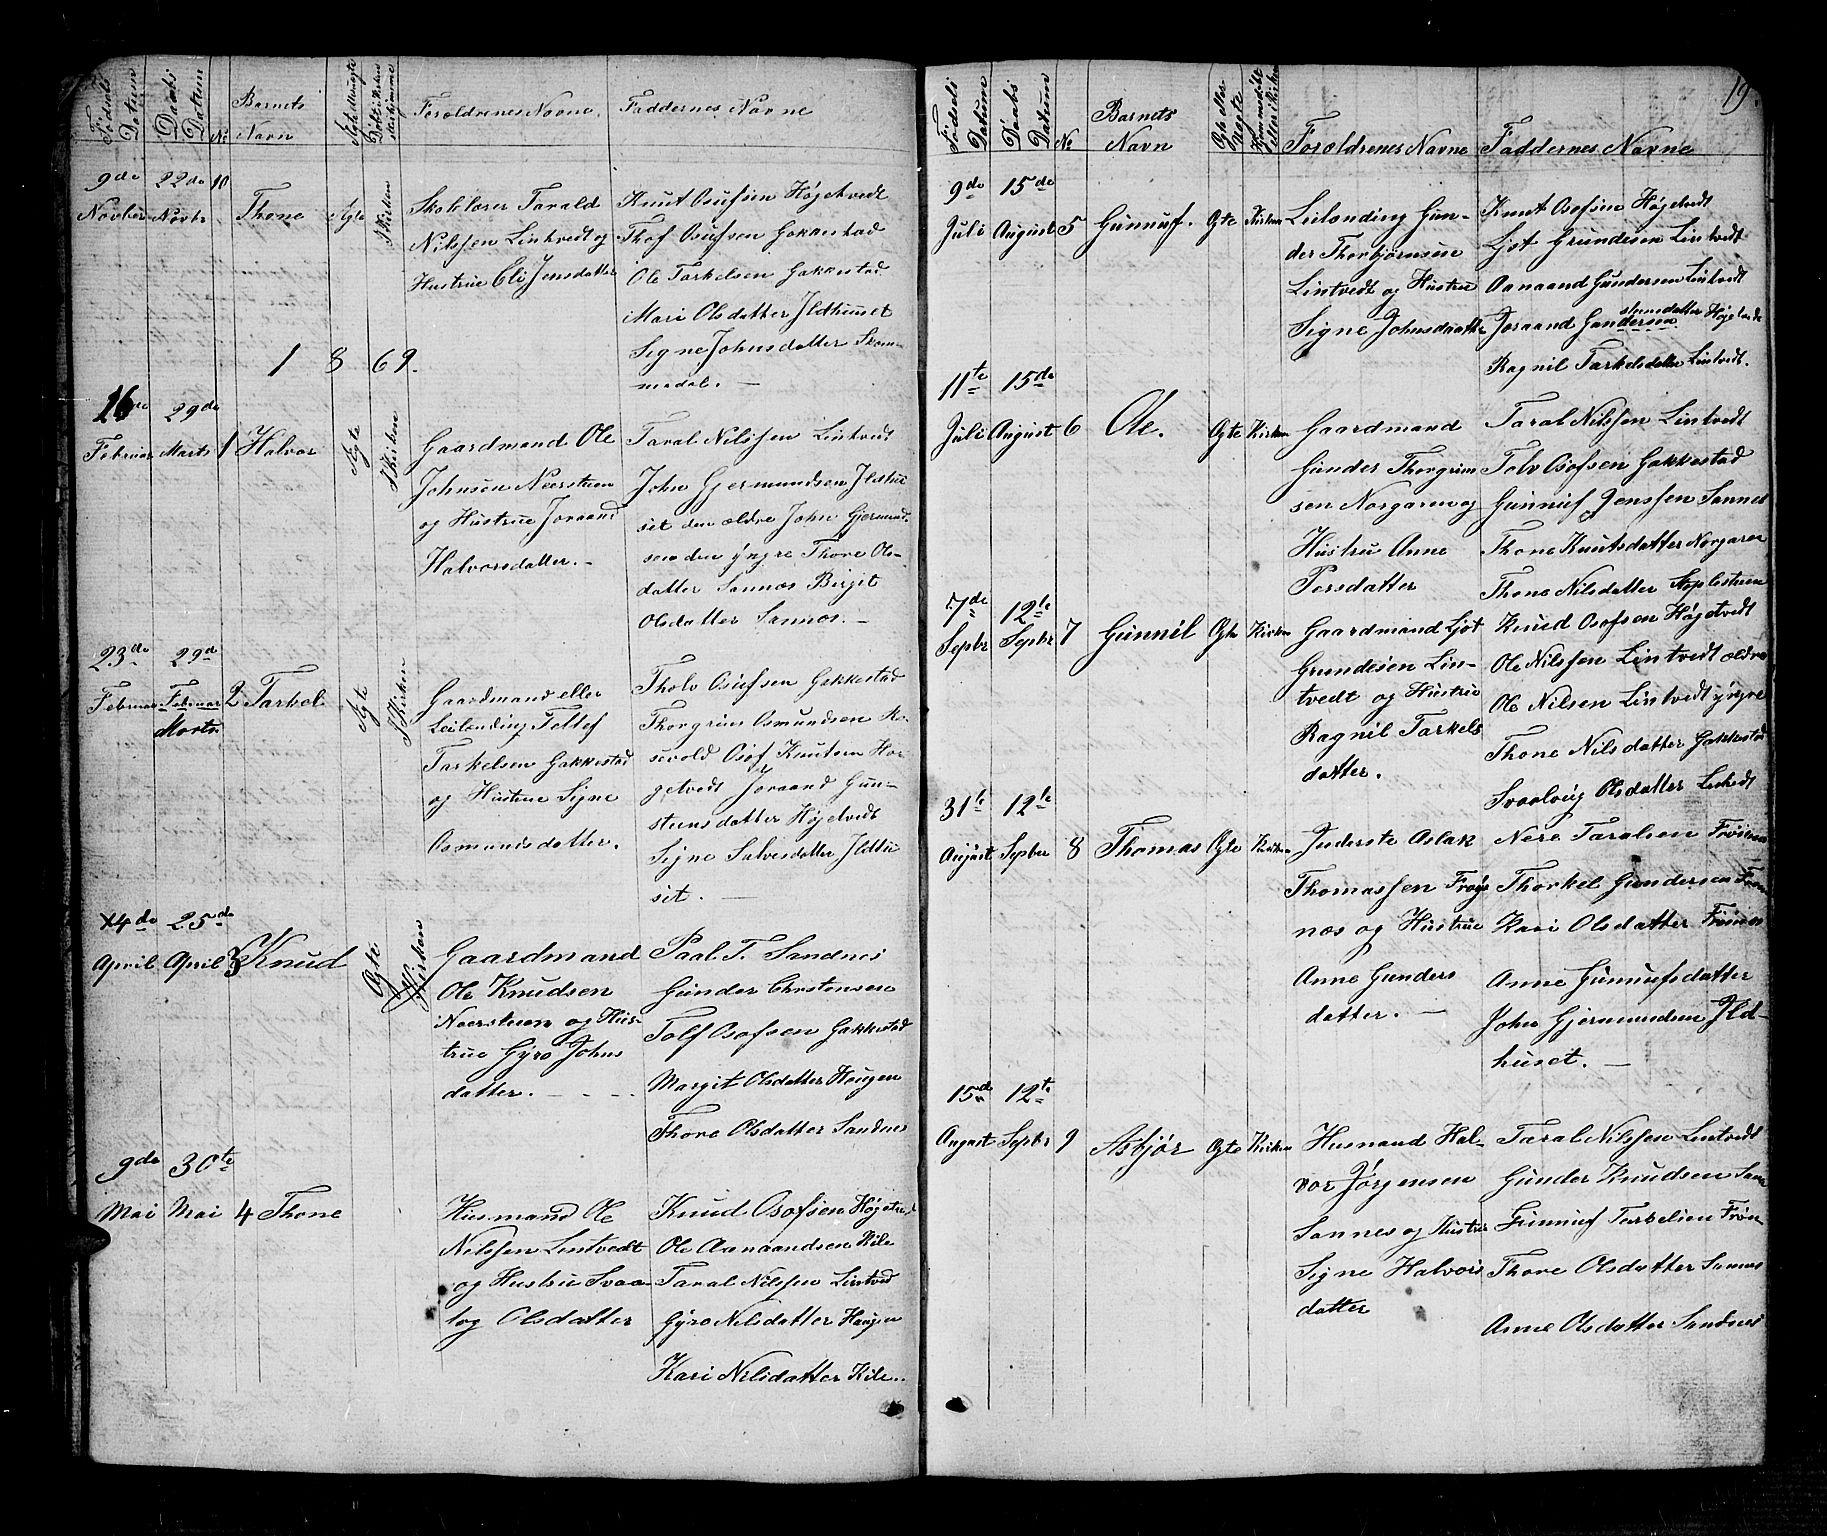 Fødsels Datum
Daabs Datum
No
Barnets Navn
Ægte eller uægte
Døbt i Kirken eller hjemme
Forældrenes Navne.
Faddernes Navne
9de Novber
22de Novbr
10
Thone
Ægte
I Kirken
Skolelærer Tarald
Nilssen Lintvedt og
Hustrue Eli Jensdatter
Knut Osufsen Højetvedt
Thof Osufsen Gakkestad
Ole Tarkelsen Gakkestad
Mari Olsdatter Jldhuuset
Segne Johnsdatter Skom-
medal. —
1 8 69.
16de Februar
29de Marts
1
Halvor
Ægte
I Kirken
Gaardmand Ole
Johnsen Neerstuen
og Hustrue Joraand
Halvorsdatter. -
Taral Nilssen Lintvedt
John Gjermundsen Jlshu
set den ældre John Gjermund-
sen den yngre Thore Ols-
datter Sannes Birgit
Olsdatter Sannes. —
23de Februar
29de Februar
Marts
2
Tarkel
Ægte
I Kirken
Gaardmand eller
Leilænding Tellef
Tarkelsen Gakkestad
og Hustrue Signe
Osmundsdatter.
Tholv Osufsen Gakkestad
Thorgrim Osmundsen Ro-
sevold Osof Knutsen Hø-
getvedt Joraand Gun-
steensdatter Højetvedt
Signe Salvesdatter Jldhu
set. —
4de April
25de April
3
Knud
Ægte
Kirken
Gaardmand
Ole Knudsen
Neerstuen og Hus-
true Gyro Johns
datter. - - - -
Paal T. Sandnes
Gunder Christensen
Tolf Osofsen Gakkestad
Margit Olsdatter Haugen
Thore Olsdatter Sandnes
9de Mai
30te Mai
4
Thone
Husmand Ole
Nilssen Lintvedt
og Hustru Svaa
log Olsdatter
Knud Osofsen Højetved
Ole Aanaandsen Kile
Taral Nilssen Lintved
Gyro Nilsdatter Haugen
Kari Nilsdatter Kile.
19.
Fødsels Datum
Daabs Datum
No
Barnets Navn
Ægte eller Uægte
Hjemmedøbt eller i Kirken
Forældrenes Navne
Faddernes Navne
9de Juli
15de August
5
Gunnuf.
Ægte
Kirken
Leilænding Gun-
der Thorbjørnsen
Lintvedt og Hustrue
Signe Johnsdaatter
Knut Osofsen Højetvedt
Ljøt Grundesen Lintvedt
Aanaand Gundersen Lintvedt
Joraand Gundersen steensdatter Højetvedt
Ragnil Tarkelsdatter Lintvedt.
11te Juli
15de August
6
Ole.
Ægte
Kirken
Gaardmand
Gunder Thorgrim
sen Norgaren og
Hustru Anne
Persdatter
Taral Nilssen Lintvedt
Tolv Osofsen Gakkestad
Gunnuf Jenssen Sannes
Thone Knutsdatter Norgaren
Thone Nilsdatter
7de Septbr
12te Septbr
7
Gunnil
Ægte
Kirken
Gaardmand Ljøt
Grundesen Lin-
tvedt og Hustrue
Ragnil Tarkels
datter.
Knud Osofsen Højetvedt
Ole Nilssen Lintvedt ældre
Ole Nilsen Lintvedt yngre
Thone Nilsdatter Gakkestad
Svaalvig Olsdatter Lintvedt
31te August
12te Septber
8
Thomas
Ægte
Kirken
Jnderste Aslak
Thomassen Frøys
nes og Hustrue
Anne Gunders
datter. —
Nere Taralsen Frøisnes
Thorkel Gundersen
Kari Olsdatter Frøisnes
Anne Gunnufsdatter
John Gjermundsen Jld-
huset. —
15de August
12te Septbr
9
Asbjør
Ægte
Kirken
Husmand Hal-
vor Jørgensen
Sannes og Hustrue
Signe Halvors
datter
Taral Nilssen Lintvedt
Gunder Knudsen
Gunnuf Tarkelsen
Thore Olsdatter Sannes
Anne Olsdatter Sandnes